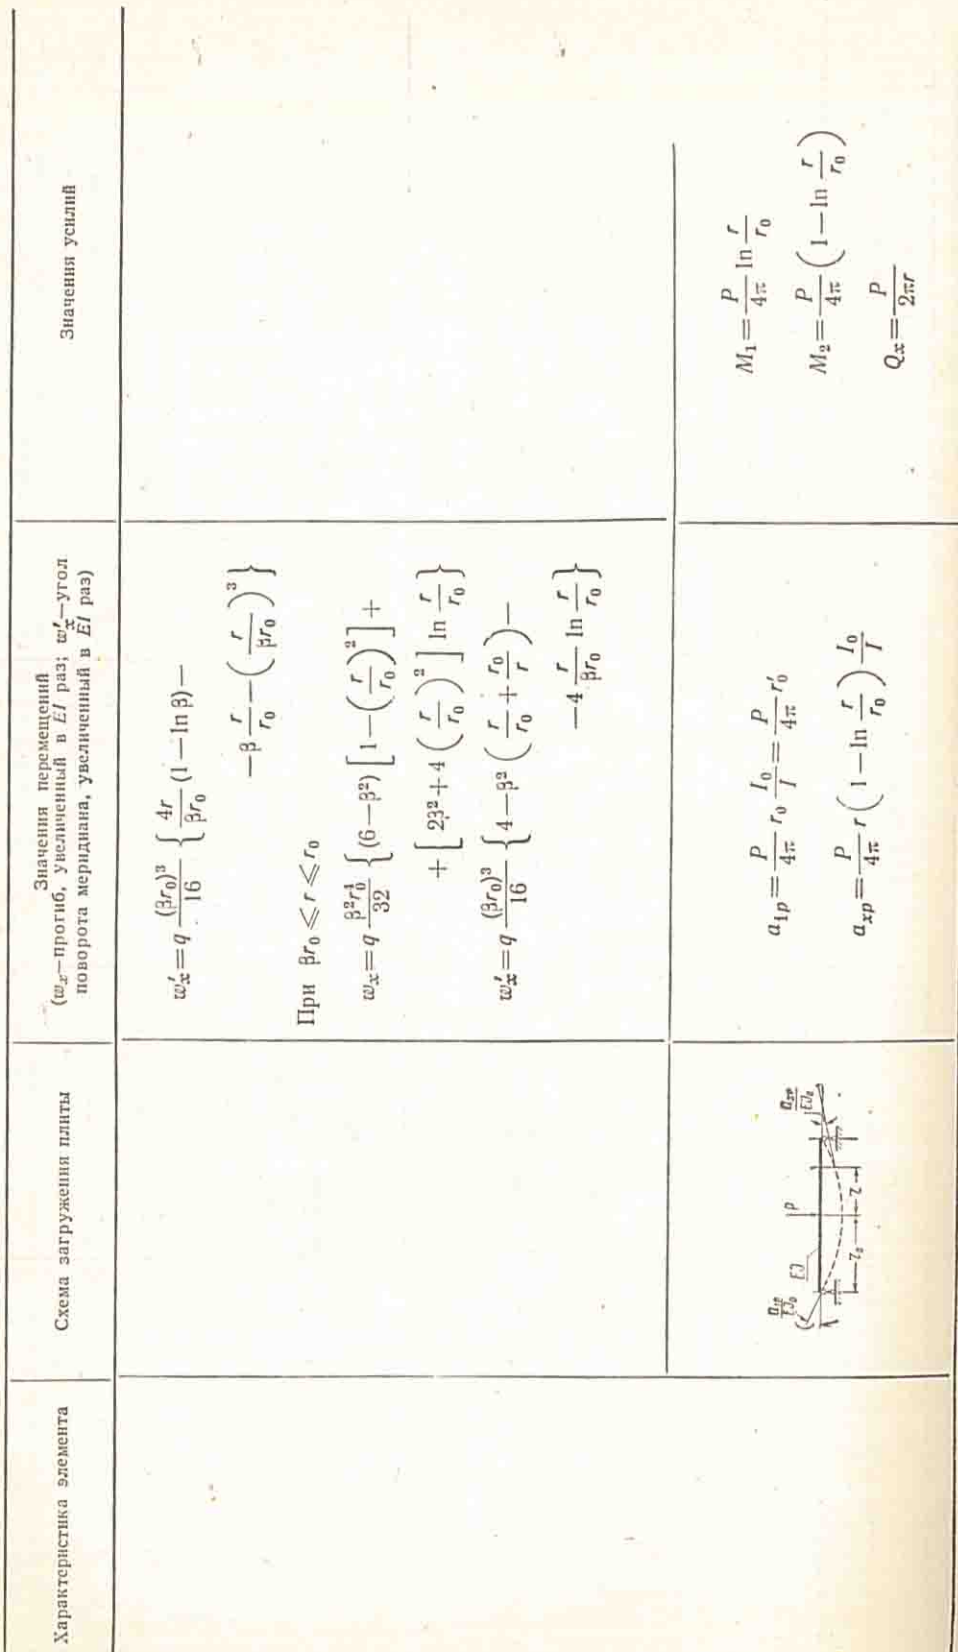 Характеристика элемента
Схема загружения плиты
Значения перемещений
(wₓ—прогиб, увеличенный в EI раз; w′ₓ—угол
поворота меридиана, увеличенный в EI раз)
Значения усилий
w′ₓ=q (βr₀)³/16 {4r/βr₀ (1—ln β)—
—β r/r₀ —(r/βr₀)³}
При βr₀ ⩽ r ⩽ r₀
wₓ=q β²r₀⁴/32 {(6—β²) [1—(r/r₀)²]+
+[2β²+4 (r/r₀)²] ln r/r₀}
w′ₓ=q (βr₀)³/16 {4—β² (r/r₀ + r₀/r)—
—4 r/βr₀ ln r/r₀}
a₁ₚ= P/4π r₀ I₀/I = P/4π r′₀
aₓₚ= P/4π r (1—ln r/r₀) I₀/I
M₁= P/4π ln r/r₀
M₂= P/4π (1—ln r/r₀)
Qₓ= P/2πr
a₁ₚ/EJ₀
EJ
P
aₓₚ/EJ₀
r₀
r